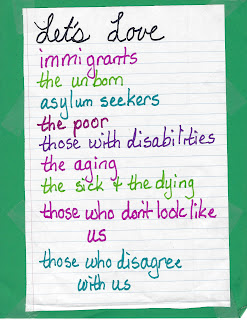 Let's Love
immigrants
the unborn
asylum seekers
the poor
those with disabilities
the aging
the sick & the dying
those who don't look like
us
those who disagree
with us